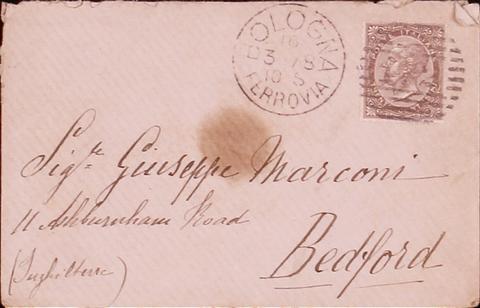 BOLOGNA
16
3 78
10 S
FERROVIA
Sigr. Giuseppe Marconi
11 Ashburnham Road
Bedford
(Inghilterra)